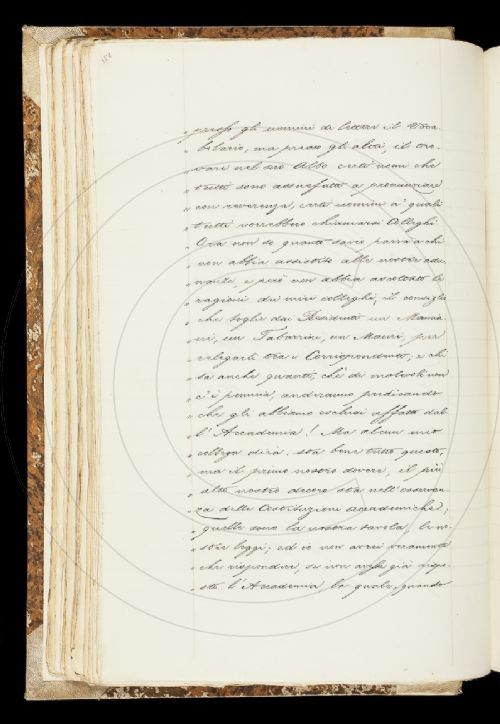 " presso gli uomini di lettere il Voca-
" bolario, ma presso gli altri, il tro-
" vare nel suo Albo certi nomi che
" tutti sono assuefatti a pronunziare
" con reverenza, certi uomini a' quali
" tutti vorrebbero chiamarsi Colleghi.
" Ora non so quanto savio parrà a chi
" non abbia assistito alle nostre adu-
" nanze e però non abbia ascoltato le
" ragioni dei miei colleghi, il consiglio
" che toglie dai Residenti un Mamia-
" ni, un Tabarrini, un Mauri, per
" relegarli tra i Corrispondenti; e chi
" sa anche quanti, chè di malevoli non
" c'è penuria, andranno predicando
" che gli abbiamo esclusi affatto dal-
" l'Accademia! Ma alcun mio
" collega dirà: sta bene tutto questo,
" ma il primo nostro dovere, il più
" alto nostro decoro sta nell'osservan-
" za delle Costituzioni accademiche;
" quelle sono la nostra tavola, le no-
" stre leggi; ed io non avrei veramente
" che rispondere, se non avesse già rispo-
" sto l'Accademia la quale, quando